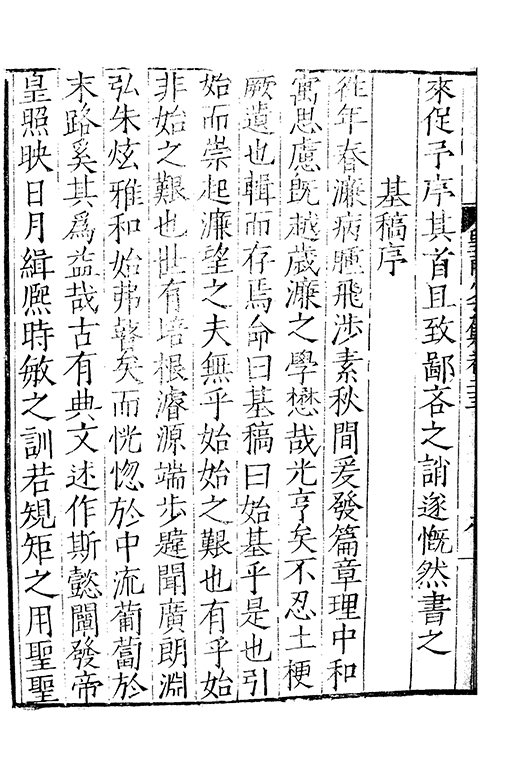 來促予序其首且致鄙吝之誚遂慨然書之
基稿序
徃年春濂病腫飛涉素秋間爰發篇章理中和
寓思慮旣越歲濂之學懋哉光亨矣不忍土梗
厥遺也輯而存焉命曰基稿曰始基乎是也引
始而崇起濂望之夫無乎始始之艱也有乎始
非始之艱也世有培根濬源端步韙聞廣朗淵
弘朱炫雅和始弗瞽矣而恍惚於中流葡蔔於
末路奚其爲益哉古有典文述作斯懿闡發帝
皇照映日月緝熈時敏之訓若䂓矩之用聖聖